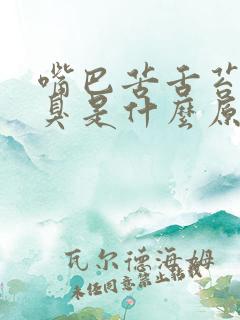 嘴巴苦舌苔
臭是什麼原
瓦尔德海姆
未经同意禁止转载